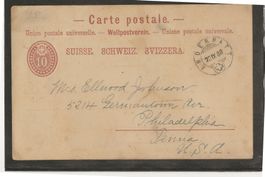 Carte postale.
Union postale universelle. — Weltpostverein. — Unione postale universale.
SUISSE. SCHWEIZ. SVIZZERA.
10
Mrs Ellwood Johnson
5214 Germantown Ave
Philadelphia
Penna
U.S.A